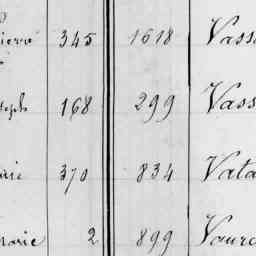 ierre 345 1618 Vass
seph 168 299 Vass
rie 370 834 Vata
marie 2 899 Vaur